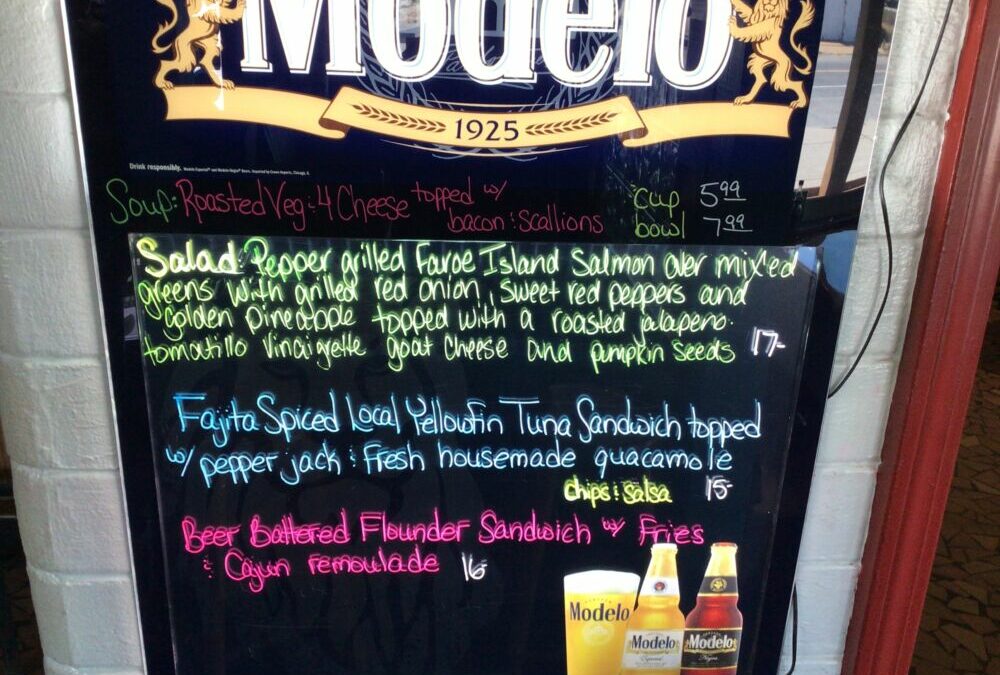 Modelo
1925
Drink responsibly.
Soup: Roasted Veg & 4 Cheese topped w/ cup 5.99
bacon & scallions bowl 7.99
Salad: Pepper grilled Faroe Island Salmon over mixed
greens with grilled red onion, sweet red peppers and
golden pineapple topped with a roasted jalapeno.
tomatillo vinaigrette goat cheese and pumpkin seeds 17-
Fajita Spiced Local Yellowfin Tuna Sandwich topped
w/ pepper jack & fresh housemade guacamole
chips & salsa 15-
Beer Battered Flounder Sandwich w/ Fries
& Cajun remoulade 16-
Modelo
Modelo
Especial
Modelo
Negra